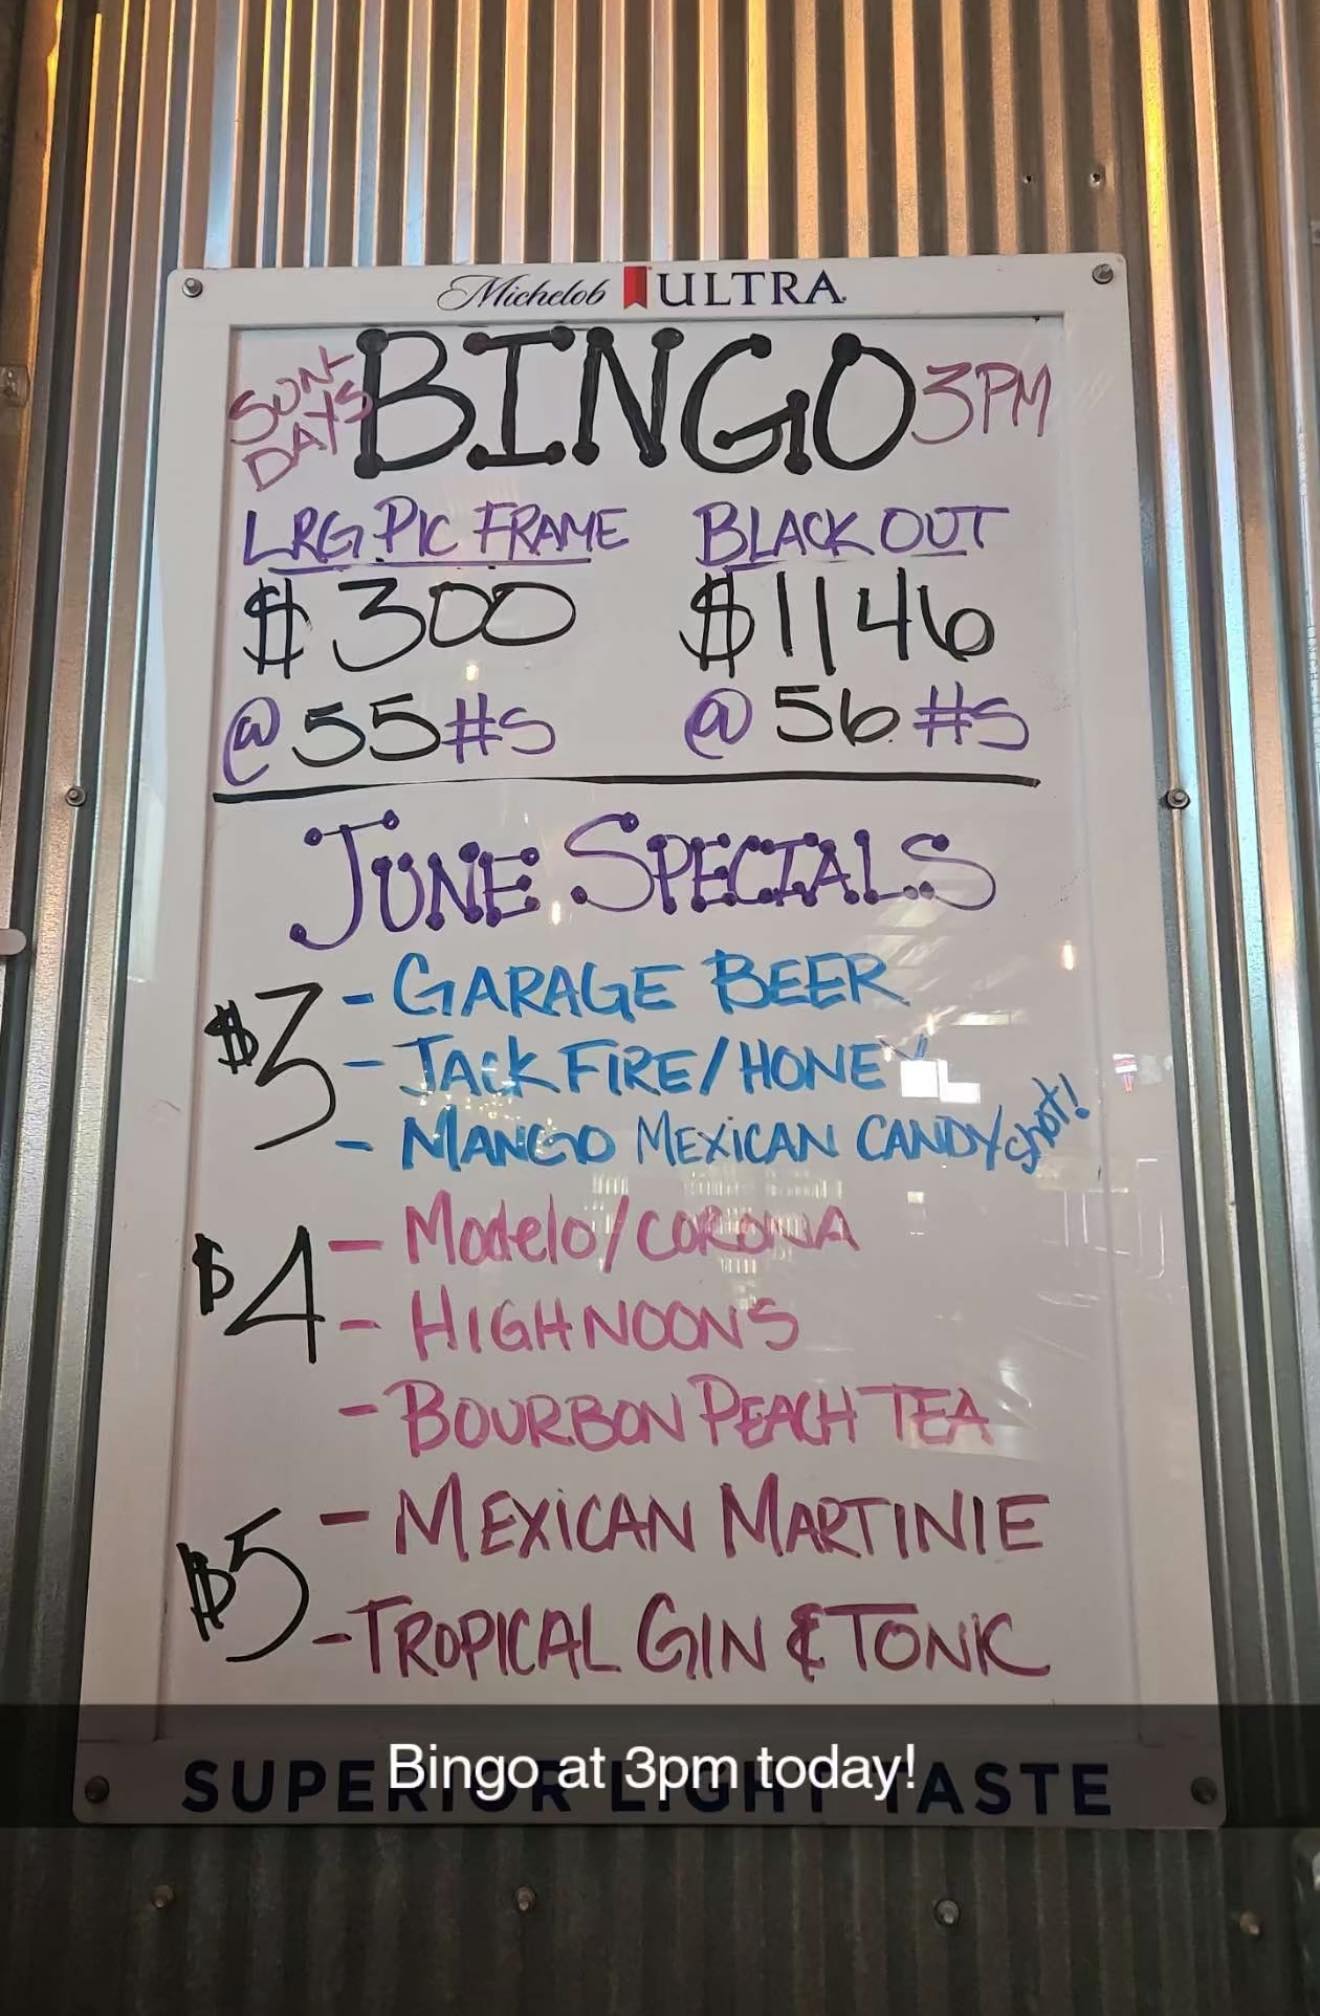 Michelob ULTRA
SUN-
DAYS
BINGO 3PM
LRG PIC FRAME BLACK OUT
$300 $1146
@ 55 #s @ 56 #s
JUNE SPECIALS
$3 - GARAGE BEER
- JACK FIRE/HONEY
- MANGO MEXICAN CANDY shot!
$4 - Modelo/CORONA
- HIGH NOONS
- BOURBON PEACH TEA
$5 - MEXICAN MARTINIE
- TROPICAL GIN & TONIC
Bingo at 3pm today!
SUPERIOR LIGHT TASTE